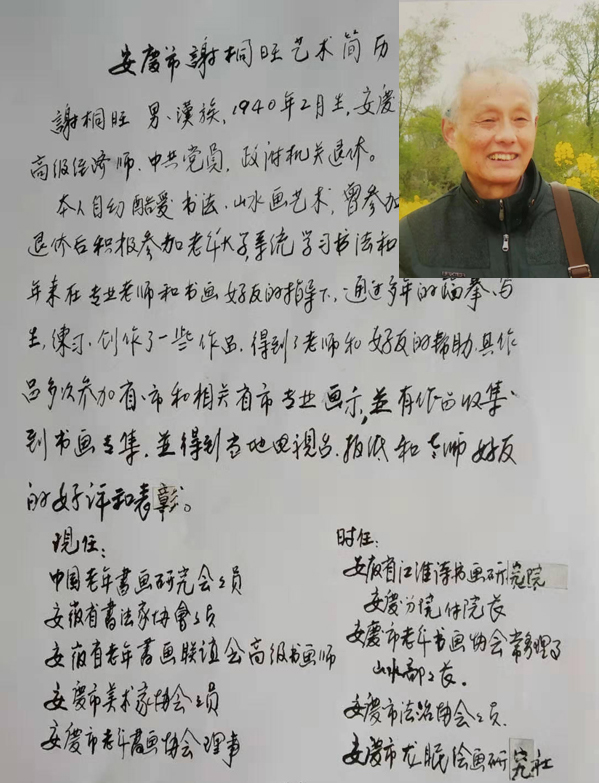 安慶市謝桐旺艺术简历
謝桐旺 男、漢族，1940年2月生，安慶
高级经济师、中共党员，政府机关退休。
本人自幼酷爱书法、山水画艺术，曾参加
退休后积极参加老年大学系统学习书法和
年来在专业老师和书画好友的指导下，通过多年的临摹、写
生，练习、创作了一些作品，得到了老师和好友的帮助，其作
品多次参加省、市和相关省市专业画示，並有作品收集
到书画专集，並得到当地电視台，报纸和老师好友
的好评和表彰。
现任：
中国老年書画研究会会员
安徽省書法家協會会员
安徽省老年書画联谊会高级书画师
安慶市美术家协会会员
安慶市老年書画协会理事
时任：
安徽省江淮诗书画研究院
安慶分院付院长
安慶市老年书画协会常务理事
山水部部长。
安慶市法治协会会员
安慶市龙眠绘画研究社